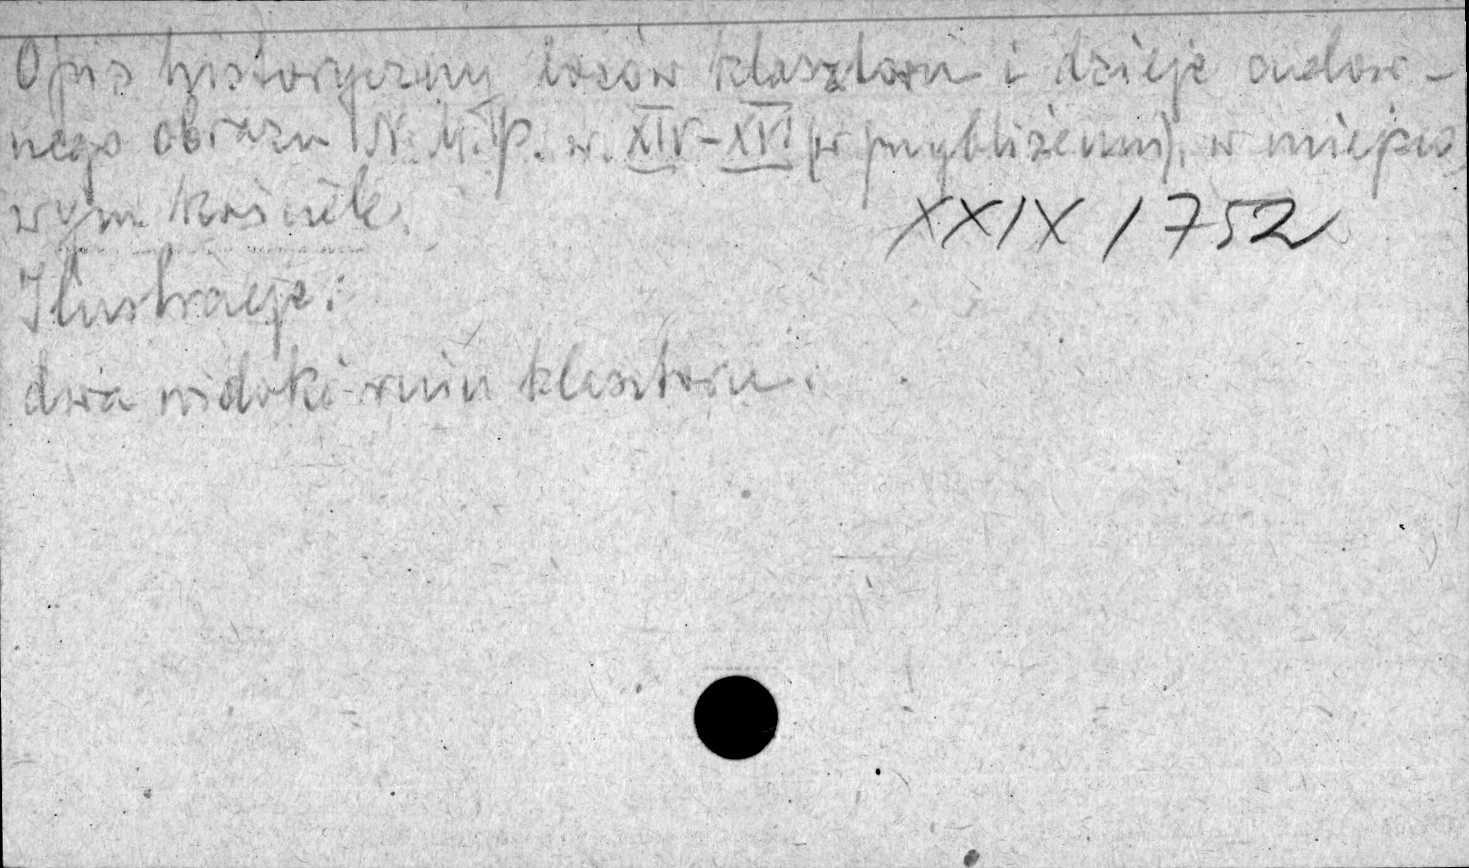 Opis historyczny losów klasztoru i dzieje cudow-
nego obrazu N.M.P. w. XIV-XVI (w przybliżeniu), w miejsco
wym kościele.
XXIX / 752
Ilustracje:
dwa widoki ruin klasztoru.